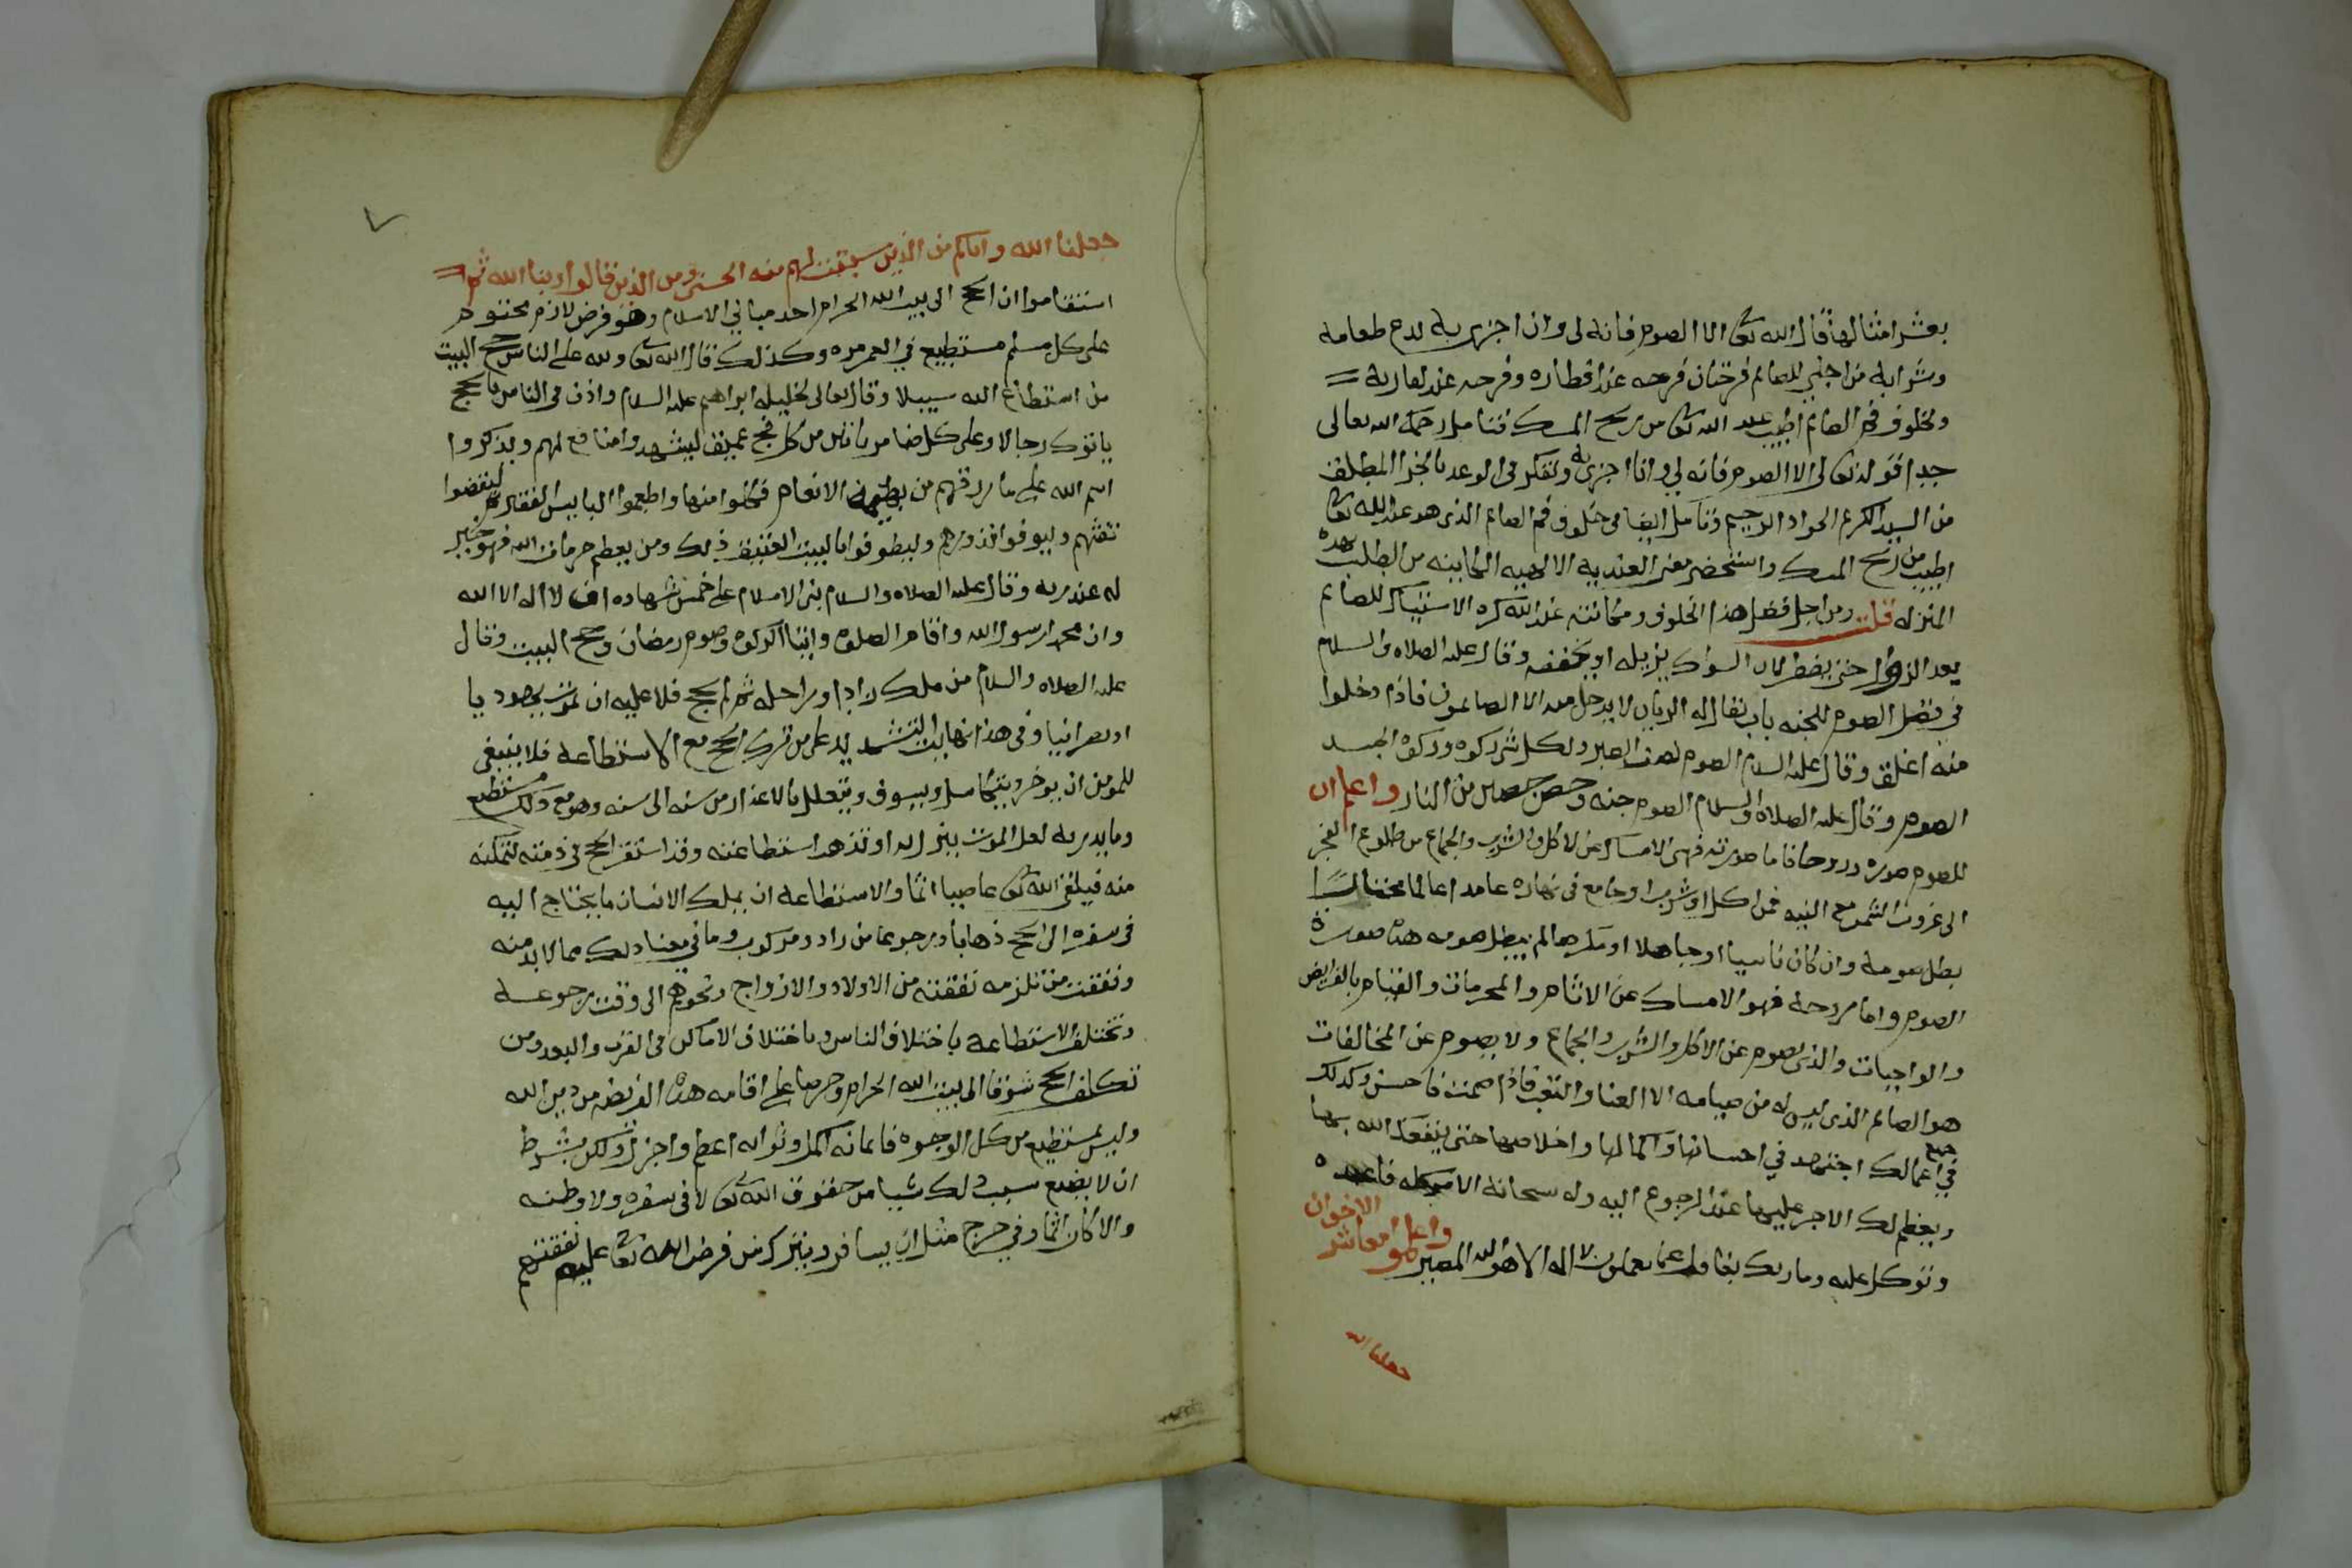 بعشر امثالها قال الله تعالى الا الصوم فانه لى وانا اجزى به يدع طعامه
وشرابه من اجلي للصائم فرحتان فرحه عند افطاره وفرحه عند لقا ربه
ولخلوف فم الصائم اطيب عند الله تعالى من ريح المسك فتامل رحمك الله تعالى
جيدا قوله تعالى الا الصوم فانه لي وانا اجزى به وتفكر فى الوعد بالجزا المطلق
من السيد الكريم الجواد الرحيم وتامل ايضا فى خلوف فم الصائم الذى هو عند الله تعالى
اطيب من ريح المسك واستحضر معنى العنديه الالهيه الكاينه من الطلب بهذه
المنزله قلت ومن اجل فضل هذا الخلوف ومكانته عند الله كره الاستياك للصائم
بعد الزوال حتى يفطر لان السواك يزيله او يخففه وقال عليه الصلاه والسلام
في فضل الصوم للجنه باب يقال له الريان لا يدخل منه الا الصائمون فاذا دخلوا
منه اغلق وقال عليه السلام الصوم نصف الصبر ولكل شى زكوه وزكوه الجسد
الصوم وقال عليه الصلاه والسلام الصوم جنه وحصن حصين من النار واعلم ان
للصوم صوره وروحا فاما صورته فهى الامساك عن الاكل والشرب والجماع من طلوع الفجر
الى غروب الشمس مع النيه فمن اكل او شرب او جامع فى نهاره عامدا عالما مختارا
بطل صومه وان كان ناسيا او جاهلا او مكرها لم يبطل صومه هذه صورة
الصوم واما روحه فهو الامساك عن الاثام والمحرمات والقيام بالفرايض
والواجبات والذى يصوم عن الاكل والشرب والجماع ولا يصوم عن المخالفات
هو الصائم الذى ليس له من صيامه الا العنا والتعب فاذا صمت فاحسن وكذلك
في جميع اعمالك اجتهد في احسانها واكمالها واخلاصها حتى ينفعك الله بها
ويعظم لك الاجر عليها عند الرجوع اليه وله سبحانه الامر كله فاعبده
وتوكل عليه وما ربك بغافل عما تعملون لا اله الا هو اليه المصير واعلموا معاشر الاخوان
جعلنا الله
جعلنا الله واياكم من الذين سبقت لهم منه الحسنى ومن الذين قالوا ربنا الله ثم
استقاموا ان الحج الى بيت الله الحرام احد مباني الاسلام وهو فرض لازم محتوم
على كل مسلم مستطيع في العمر مره وكذلك قال الله تعالى ولله على الناس حج البيت
من استطاع اليه سبيلا وقال تعالى لخليله ابراهيم عليه السلام واذن فى الناس بالحج
ياتوك رجالا وعلى كل ضامر ياتين من كل فج عميق ليشهدوا منافع لهم ويذكروا
اسم الله على ما رزقهم من بهيمة الانعام فكلوا منها واطعموا البايس الفقير ثم ليقضوا
تفثهم وليوفوا نذورهم وليطوفوا بالبيت العتيق ذلك ومن يعظم حرمات الله فهو خير
له عند ربه وقال عليه الصلاه والسلام بنى الاسلام على خمس شهاده ان لا اله الا الله
وان محمدا رسول الله واقام الصلوه وايتا الزكوه وصوم رمضان وحج البيت وقال
عليه الصلاه والسلام من ملك زادا وراحله ثم لم يحج فلا عليه ان يموت يهوديا
او نصرانيا وفى هذا نهاية التشديد على من ترك الحج مع الاستطاعه فلا ينبغى
للمومن ان يوخر ويتكاسل ويسوف ويتعلل بالاعذار من سنه الى سنه وهو مع ذلك مستطيع
وما يدريه لعل الموت ينزل به او تذهب استطاعته وقد استقر الحج فى ذمته لتمكنه
منه فيلقى الله تعالى عاصيا اثما والاستطاعه ان يملك الانسان ما يحتاج اليه
فى سفره الى الحج ذهابا ورجوعا من زاد ومركوب وما في معنا ذلك مما لا بد منه
ونفقت من تلزمه نفقته من الاولاد والازواج ونحوهم الى وقت رجوعه
وتختلف الاستطاعه باختلاف الناس وباختلاف الاماكن فى القرب والبعد ومن
تكلف الحج شوقا الى بيت الله الحرام وحرصا على اقامه هذه الفريضه من دين الله
وليس بمستطيع من كل الوجوه فايمانه اكمل وثوابه اعظم واجزل ولكن بشرط
ان لا يضيع بسبب ذلك شيا من حقوق الله تعالى لا فى سفره ولا وطنه
والا كان اثما وفي حرج مثل ان يسافر ويترك من فرض الله تعالى عليه نفقتهم